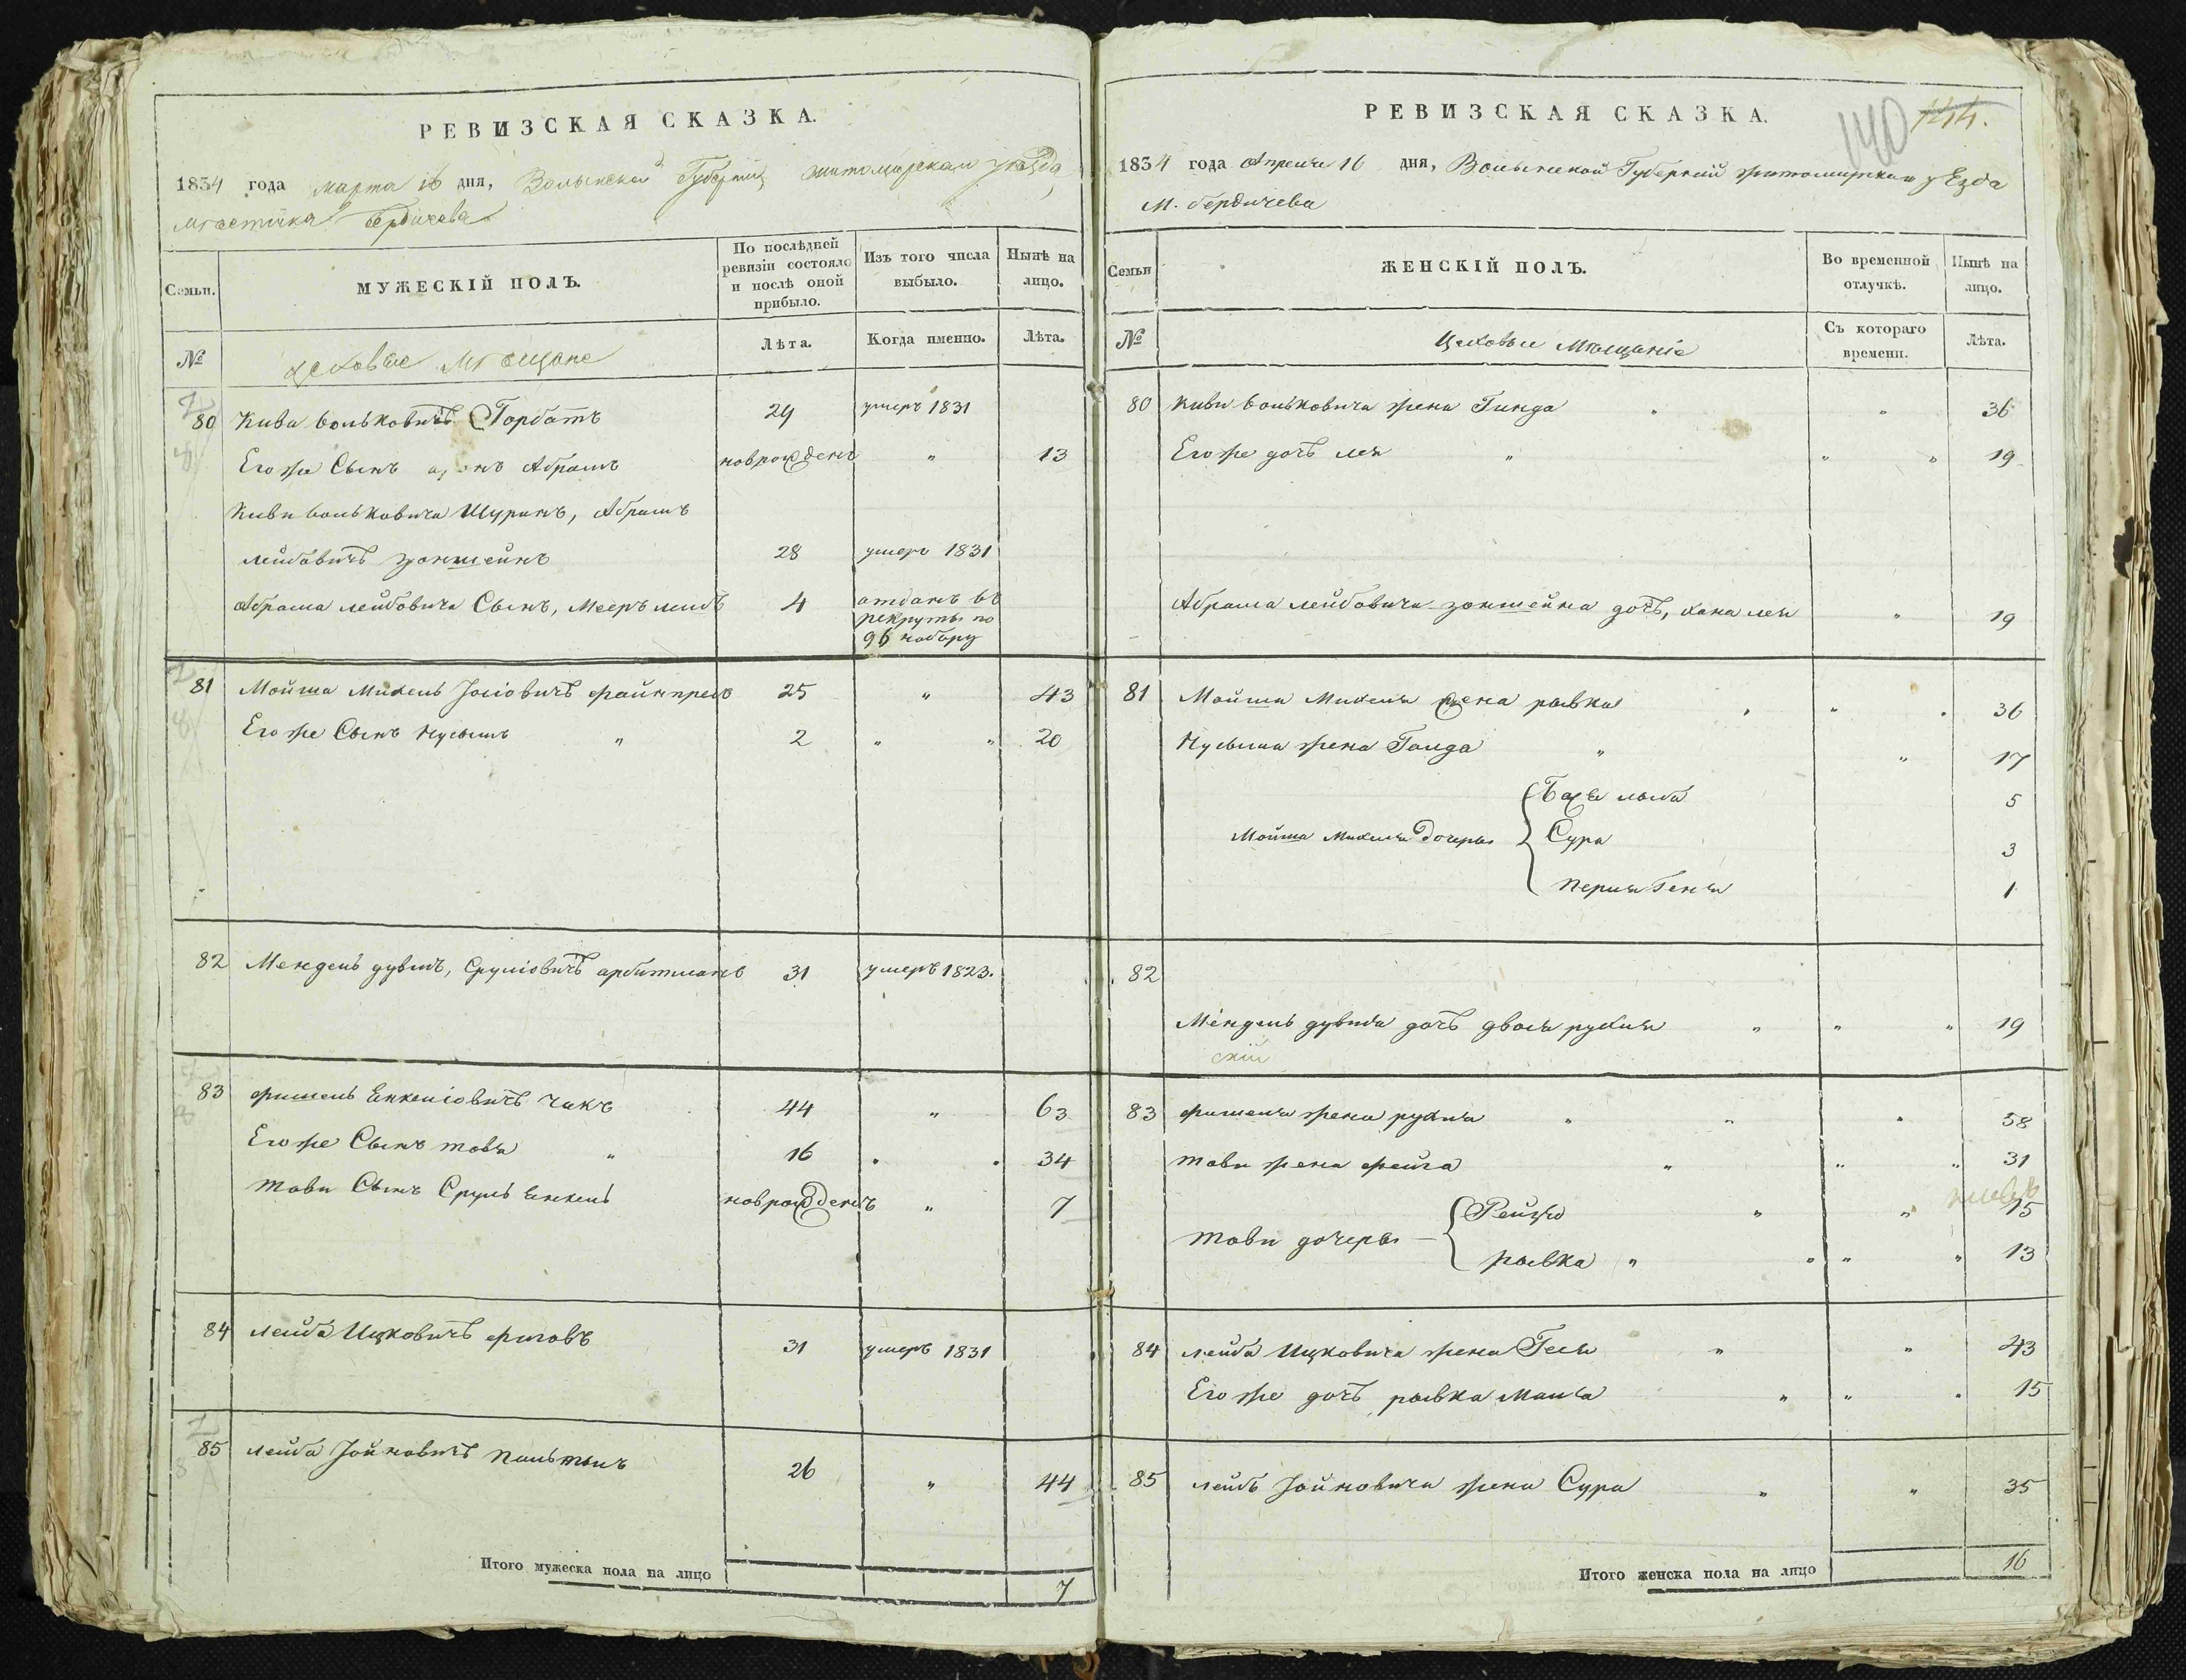 РЕВИЗСКАЯ СКАЗКА.
1834 года марта 16 дня, Волынской Губерніи житомирскаго уѣзда
мѣстечка Бердичева
Семьи.
МУЖЕСКІЙ ПОЛЪ.
По послѣдней ревизіи состояло и послѣ оной прибыло.
Изъ того числа выбыло.
Нынѣ на лицо.
№
цеховые Мѣщане
Лѣта.
Когда именно.
Лѣта.
80 Кива Вольковичъ Горбатъ 29 умеръ 1831
Его же Сынъ Абрамъ новрожденъ " 13
Киви Вольковича Шуринъ, Абрамъ
лейбовичъ зоншейнъ 28 умеръ 1831
Абрама лейбовича Сынъ, Мееръ лейбъ 4 отданъ въ
рекруты по
96 набору
81 Мойша Михель Іосіовичъ файнпрехъ 25 " 43
Его же Сынъ Нусымъ " 2 " " 20
82 Мендель дувидъ, Срулiовичъ арбитманъ 31 умеръ 1823.
83 фишель Енкеліовичъ Чакъ 44 " 63
Его же Сынъ товія " 16 " " 34
Тови Сынъ Сруль Енкель новрожденъ " 7
84 лейба Ицковичъ 31 умеръ 1831
85 лейба Іойновичъ Пальтынъ 26 " 44
Итого мужеска пола на лицо 7
РЕВИЗСКАЯ СКАЗКА.
140 144.
1834 года Апреля 16 дня, Волынской Губерніи житомирскаго уѣзда
М. бердичева
Семьи
ЖЕНСКІЙ ПОЛЪ.
Во временной отлучкѣ.
Нынѣ на лицо.
№
Цеховые Мѣщаніе
Съ котораго времени.
Лѣта.
80 Киви Вольковича жена Гинда " " 36
Его же дочъ лея " " " 19
Абрама лейбовича зоншейна дочъ, хана лея " 19
81 Мойша Михеля жена рывка " " " 36
Нусыма жена Голда " " 17
Бася 5
Мойша Михеля дочеры { Сура 3
Перля Геня 1
82
Мендель дувида дочъ двося рухля " " " 19
скій
83 фишеля жена рухля " " " 58
Тови жена фейга " " " 31
Рейзя " " 15
Тови дочеры — {
рывка " " " " 13
84 лейба Ицковича жена Геся " " 43
Его же дочъ рывка Маля " " " 15
85 лейбъ Іойновича жена Сура " " 35
Итого женска пола на лицо 16